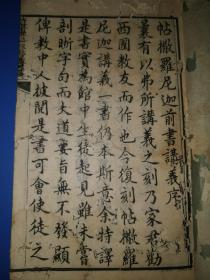 帖撒羅尼迦前書講義序
曩有以弗所講義之刻乃家君勸
西國教友而作也今復刻帖撒羅
尼迦講義一書仍本斯意余特譯
是書實為館中生徒起見雖未嘗
剖晰字句而大道要旨無不發顯
俾教中人披閱是書可會使徒之